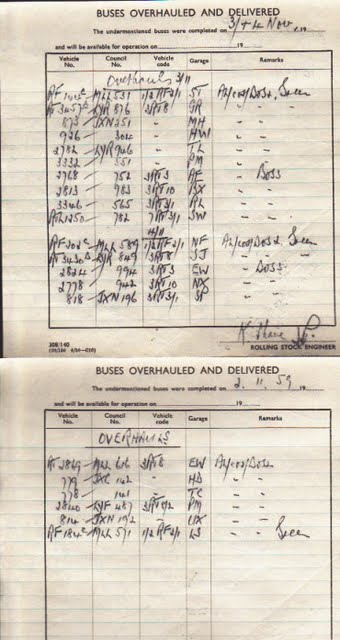 BUSES OVERHAULED AND DELIVERED
The undermentioned buses were completed on 3/4 Nov. 19
and will be available for operation on 19
Vehicle No. Council No. Vehicle code Garage Remarks
Overhauls 3/11
MLL 531 1/2 RF 2/1 ST
RT 3457 LYR 876 3RT8 GR " "
873 JXN 251 " MH " "
926 304 " HW " "
2782 LYR 946 " TL " "
3332 551 " PM " "
2768 752 3RT3 AF " Boss
2813 783 3RT10 BX " "
3346 565 3RT3/1 RL " "
782 7RT3/1 SW " "
4/11
RF 202 MLL 589 1/2 RF 2/1 NF
RT 3430 LYR 849 3RT8 SJ " "
2824 994 3RT3 EW " Boss
2778 942 3RT10 NX " "
818 JXN 196 3RT3/1 SP " "
ROLLING STOCK ENGINEER
BUSES OVERHAULED AND DELIVERED
The undermentioned buses were completed on 2. 11. 59 19
and will be available for operation on 19
Vehicle No. Council No. Vehicle code Garage Remarks
OVERHAULS
MLL 616 3RT8 EW
779 JXC 142 " HD " "
778 141 " TC " "
2840 LYF 487 PM " "
814 JXN 192 " UX " "
RF 184 MLL 571 1/2 RF 2/1 LS " "